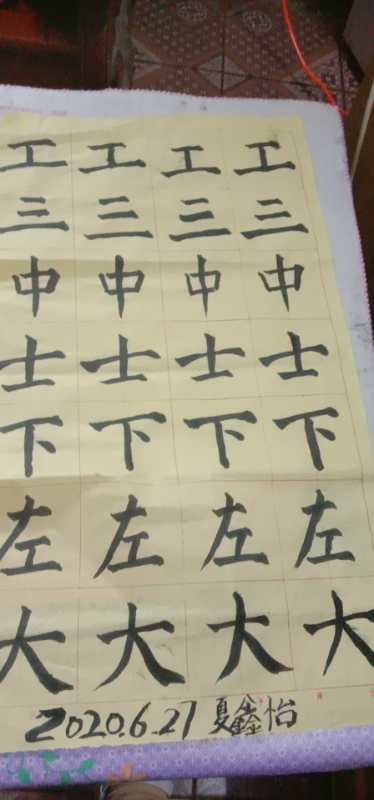 工工工工
三三三三
中中中中
士士士士
下下下下
左左左左
大大大大
2020.6.27 夏鑫怡